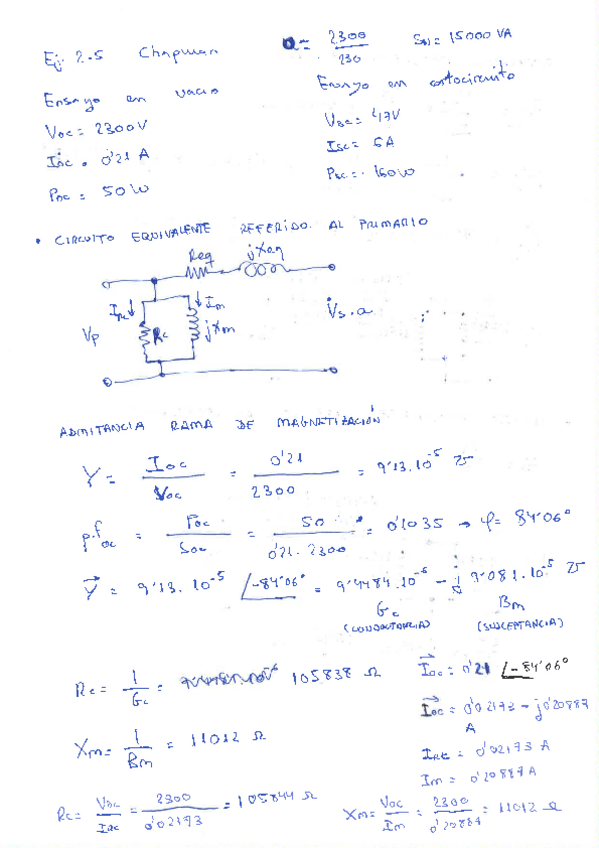 Ej. 2.5 Chapman a = 2300/230 SN = 15000 VA
Ensayo en vacio Ensayo en cortocircuito
Voc = 2300V Vsc = 47V
Ioc = 0'21 A Isc = 6A
Poc = 50 W Psc = 160W
• CIRCUITO EQUIVALENTE REFERIDO AL PRIMARIO
Req jXeq
IRc Im
Vp Rc jXm Vs.a
ADMITANCIA RAMA DE MAGNETIZACIÓN
Y = Ioc/Voc = 0'21/2300 = 9'13.10^-5 ℧
p.f oc = Poc/Soc = 50/0'21.2300 = 0'1035 → φ = 84'06°
Y = 9'13.10^-5 ∠-84'06° = 9'4484.10^-6 - j 9'081.10^-5 ℧
Gc Bm
(CONDUCTANCIA) (SUSCEPTANCIA)
Rc = 1/Gc = 105838 Ω
Ioc = 0'21 ∠-84'06°
Ioc = 0'02173 - j0'20887
A
Xm = 1/Bm = 11012 Ω
IRc = 0'02173 A
Im = 0'20887A
Rc = Voc/IRc = 2300/0'02173 = 105844 Ω Xm = Voc/Im = 2300/0'20887 = 11012 Ω